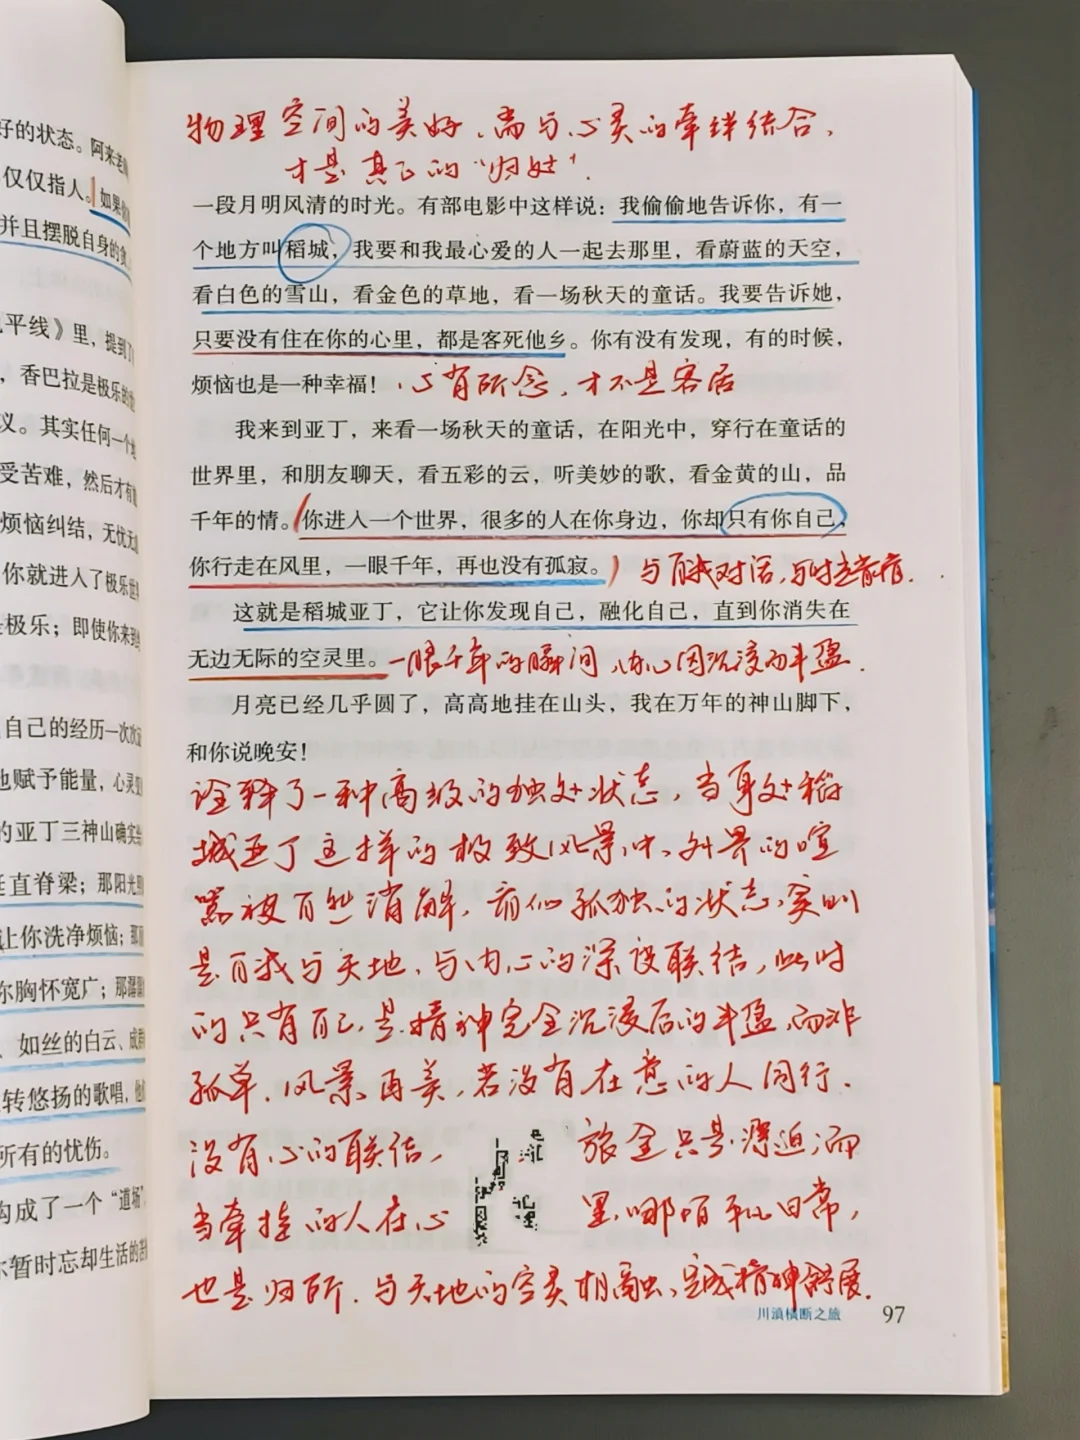 好的状态。阿来老
仅仅指人。如果
并且摆脱自身的贪
平线》里，提到了
，香巴拉是极乐的
义。其实任何一个
受苦难，然后才有
烦恼纠结，无忧无
你就进入了极乐世
极乐；即使你来到
自己的经历一次次
也赋予能量，心灵
的亚丁三神山确实
直脊梁；那阳光
让你洗净烦恼；那
你胸怀宽广；那潺潺
、如丝的白云、成群
转悠扬的歌唱，他
所有的忧伤。
构成了一个“道场”
你暂时忘却生活的苦
物理空间的美好、需与心灵的牵绊结合，
才是真正的“归处”.
一段月明风清的时光。有部电影中这样说：我偷偷地告诉你，有一
个地方叫稻城，我要和我最心爱的人一起去那里，看蔚蓝的天空，
看白色的雪山，看金色的草地，看一场秋天的童话。我要告诉她，
只要没有住在你的心里，都是客死他乡。你有没有发现，有的时候，
烦恼也是一种幸福！心有所念，才不是客居
我来到亚丁，来看一场秋天的童话，在阳光中，穿行在童话的
世界里，和朋友聊天，看五彩的云，听美妙的歌，看金黄的山，品
千年的情。你进入一个世界，很多的人在你身边，你却只有你自己，
你行走在风里，一眼千年，再也没有孤寂。与自我对话，与时
这就是稻城亚丁，它让你发现自己，融化自己，直到你消失在
无边无际的空灵里。一眼千年的瞬间，内心因沉浸而丰盈.
月亮已经几乎圆了，高高地挂在山头，我在万年的神山脚下，
和你说晚安！
诠释了一种高级的独处状态，当身处稻
城亚丁这样的极致风景中，外界的喧
嚣被自然消解，看似孤独的状态，实则
是自我与天地、与内心的深度联结，此时
的只有自己，是精神完全沉浸后的丰盈，而非
孤单．风景再美，若没有在意的人同行．
没有心的联结，旅途只是漂泊；而
当牵挂的人在心里，哪怕平凡日常，
也是归所．与天地的空灵相融，完成精神舒展.
川滇横断之旅 97